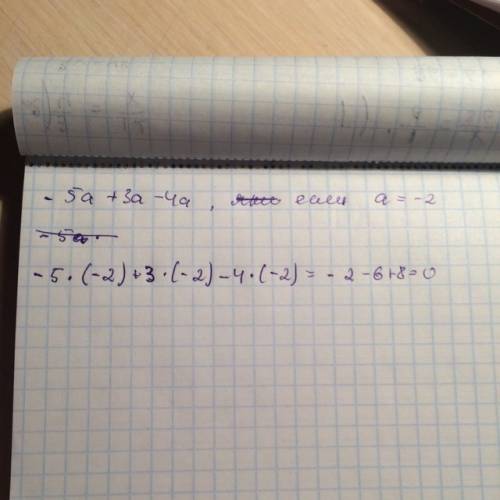 - 5a + 3a - 4a , если a = -2
- 5 · (-2) + 3 · (-2) - 4 · (-2) = - 2 - 6 + 8 = 0